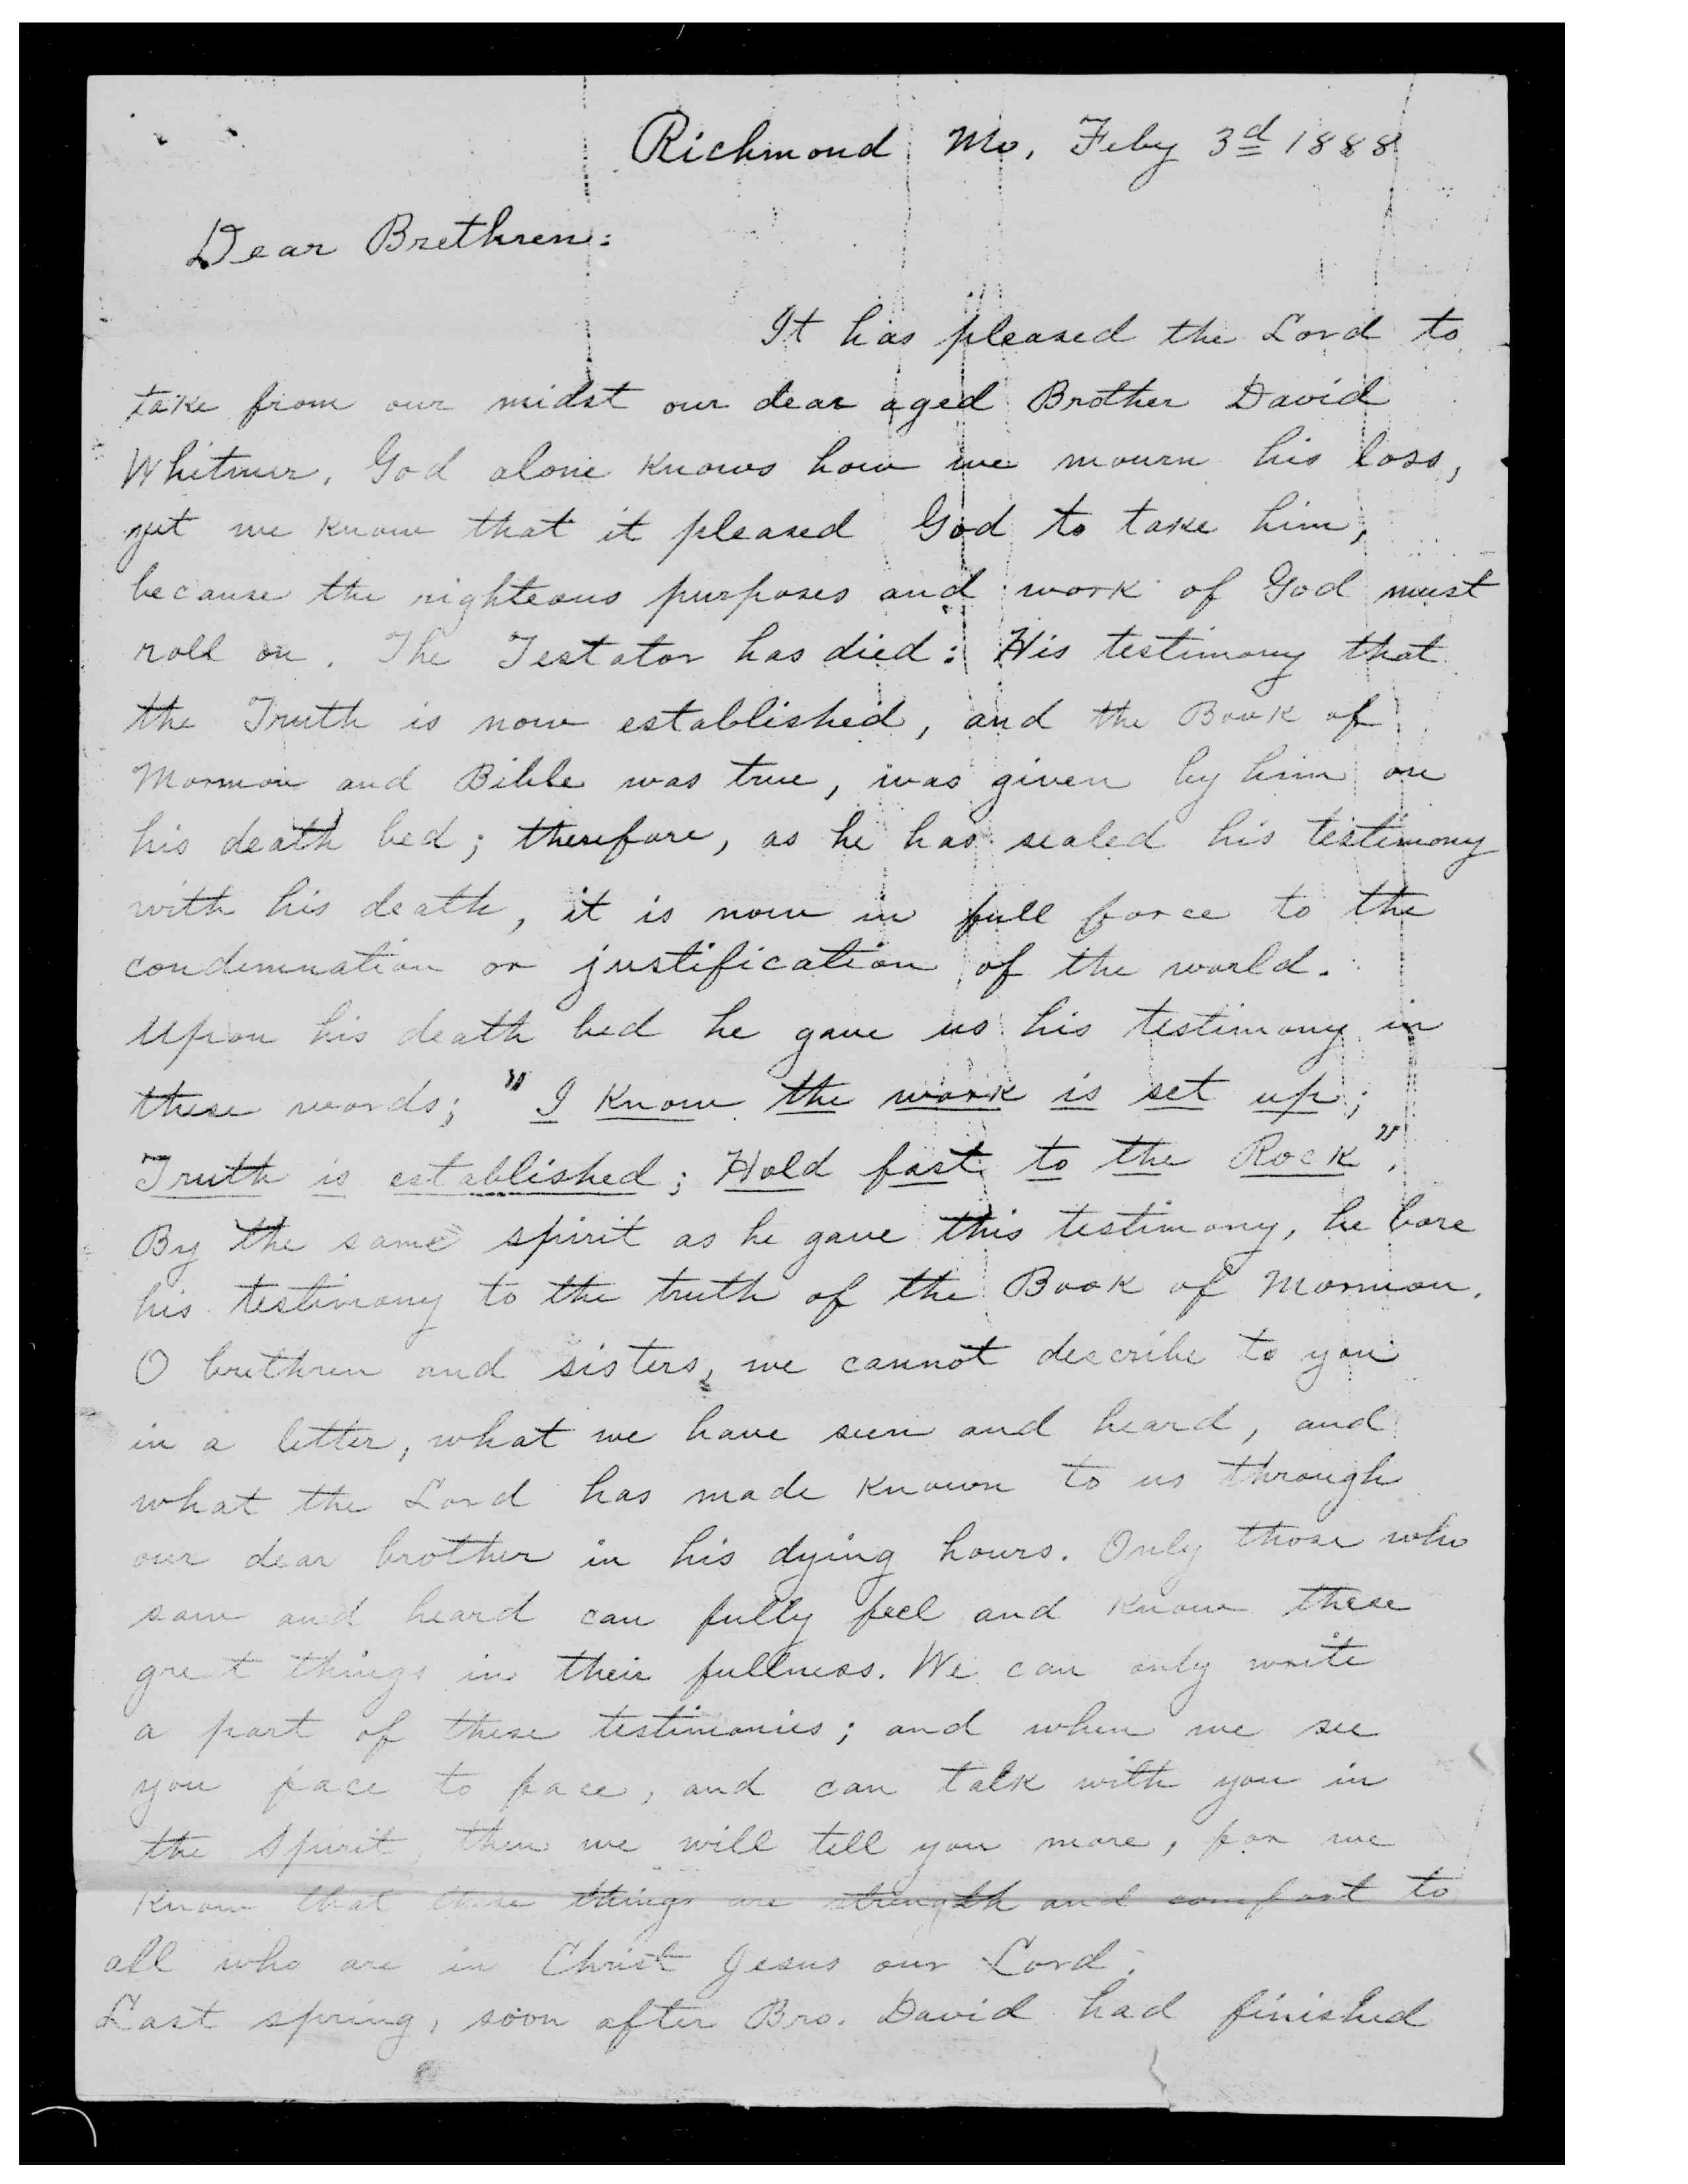 Richmond Mo, Feby 3d 1888
Dear Brethren:
It has pleased the Lord to
take from our midst our dear aged Brother David
Whitmer. God alone knows how we mourn his loss,
yet we know that it pleased God to take him,
because the righteous purposes and work of God must
roll on. The Testator has died: His testimony that
the Truth is now established, and the Book of
Mormon and Bible was true, was given by him on
his death bed; therefore, as he has sealed his testimony
with his death, it is now in full force to the
condemnation or justification of the world.
Upon his death bed he gave us his testimony in
these words; "I know the work is set up;
Truth is established; Hold fast to the Rock".
By the same spirit as he gave this testimony, he bore
his testimony to the truth of the Book of Mormon.
O brethren and sisters, we cannot describe to you
in a letter, what we have seen and heard, and
what the Lord has made known to us through
our dear brother in his dying hours. Only those who
saw and heard can fully feel and know these
great things in their fullness. We can only write
a part of these testimonies; and when we see
you face to face, and can talk with you in
the Spirit, then we will tell you more, for we
know that these things are strength and comfort to
all who are in Christ Jesus our Lord.
Last spring, soon after Bro. David had finished